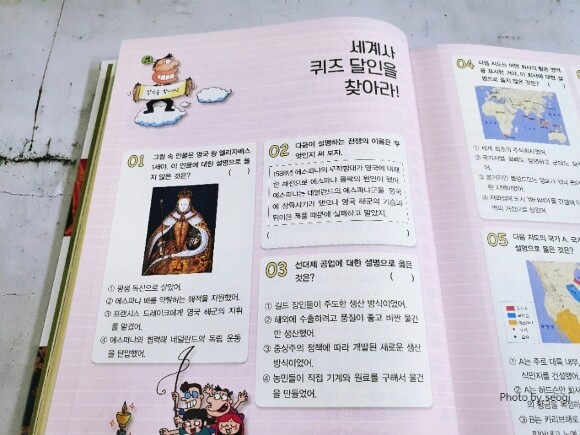 세계사
퀴즈 달인을
찾아라!
01
그림 속 인물은 영국 왕 엘리자베스
1세야. 이 인물에 대한 설명으로 옳
지 않은 것은? ( )
① 평생 독신으로 살았어.
② 에스파냐 배를 약탈하는 해적을 지원했어.
③ 프랜시스 드레이크에게 영국 해군의 지휘
를 맡겼어.
④ 에스파냐와 협력해 네덜란드의 독립 운동
을 탄압했어.
02
다음이 설명하는 전쟁의 이름은 무
엇인지 써 보자.
1588년 에스파냐의 무적함대가 영국에 대패
한 사건으로 에스파냐 몰락의 원인이 됐어.
에스파냐는 네덜란드의 에스파냐군을 영국
에 상륙시키려 했으나 영국 해군의 기습과
뒤이은 폭풍 때문에 실패하고 말았지.
( )
03
선대제 공업에 대한 설명으로 옳은
것은? ( )
① 길드 장인들이 주도한 생산 방식이었어.
② 해외에 수출하려고 품질이 좋고 비싼 물건
만 생산했어.
③ 중상주의 정책에 따라 개발된 새로운 생산
방식이었어.
④ 농민들이 직접 기계와 원료를 구해서 물건
을 만들었어.
04
다음 지도는 어떤 회사의 활동 영역
을 표시한 거야. 이 회사에 대한 설
명으로 옳지 않은 것은? ( )
① 세계 최초의 주식회사였어.
05
다음 지도의 국가 A, 국
① A는 주로 대륙 내부,
식민지를 건설했어.
② A는 허드슨만 회사
③ B는 카리브해로
Photo by seogi